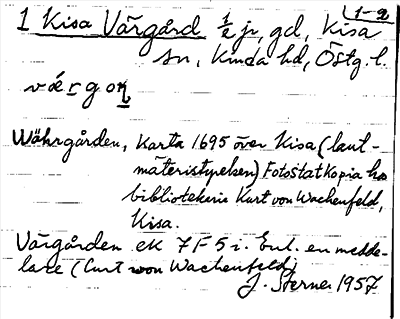 1-2
1 Kisa Vårgård 1/2 jr, gd, Kisa
sn, Kinda hd, Östg. l.
vǻrgoṉ
Wåhrgården, Karta 1695 över Kisa (lant-
mäteristyrelsen) Fotostatkopia hos
bibliotekarie Kurt von Wachenfeld,
Kisa.
Vårgården ek 7F5i. Enl. en medde-
lare (Curt von Wachenfeld)
J. Sterner 1957